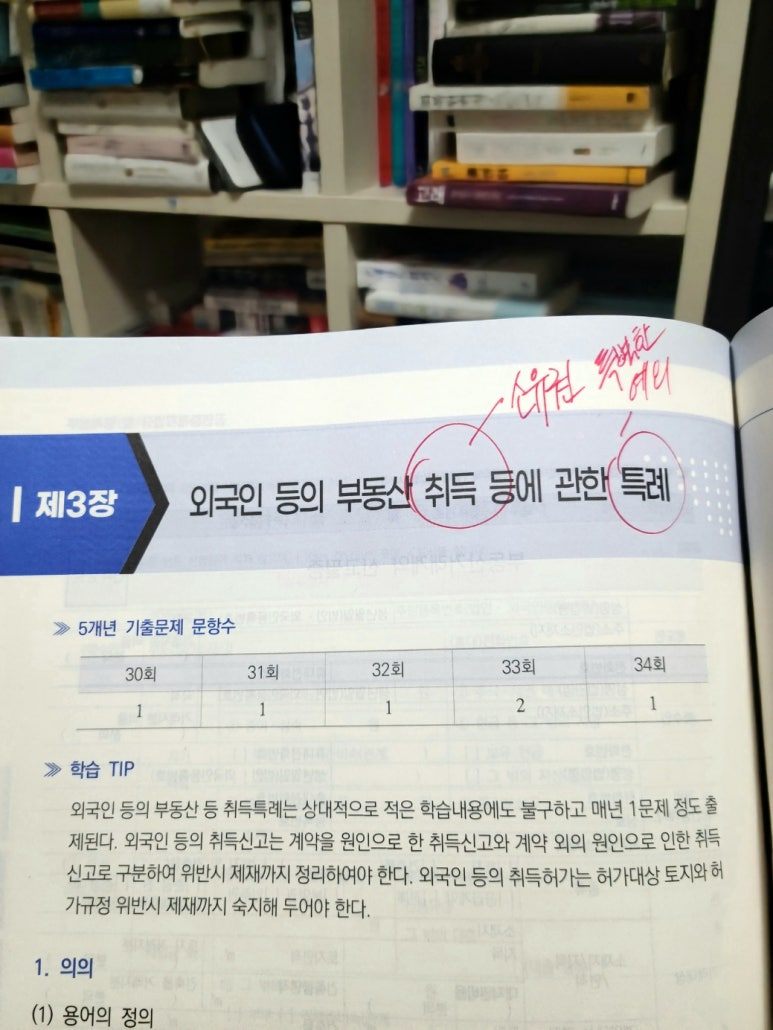 고래
소유권 특별한
예외
제3장 외국인 등의 부동산 취득 등에 관한 특례
≫ 5개년 기출문제 문항수
30회 31회 32회 33회 34회
1 1 1 2 1
≫ 학습 TIP
외국인 등의 부동산 등 취득특례는 상대적으로 적은 학습내용에도 불구하고 매년 1문제 정도 출
제된다. 외국인 등의 취득신고는 계약을 원인으로 한 취득신고와 계약 외의 원인으로 인한 취득
신고로 구분하여 위반시 제재까지 정리하여야 한다. 외국인 등의 취득허가는 허가대상 토지와 허
가규정 위반시 제재까지 숙지해 두어야 한다.
1. 의의
(1) 용어의 정의